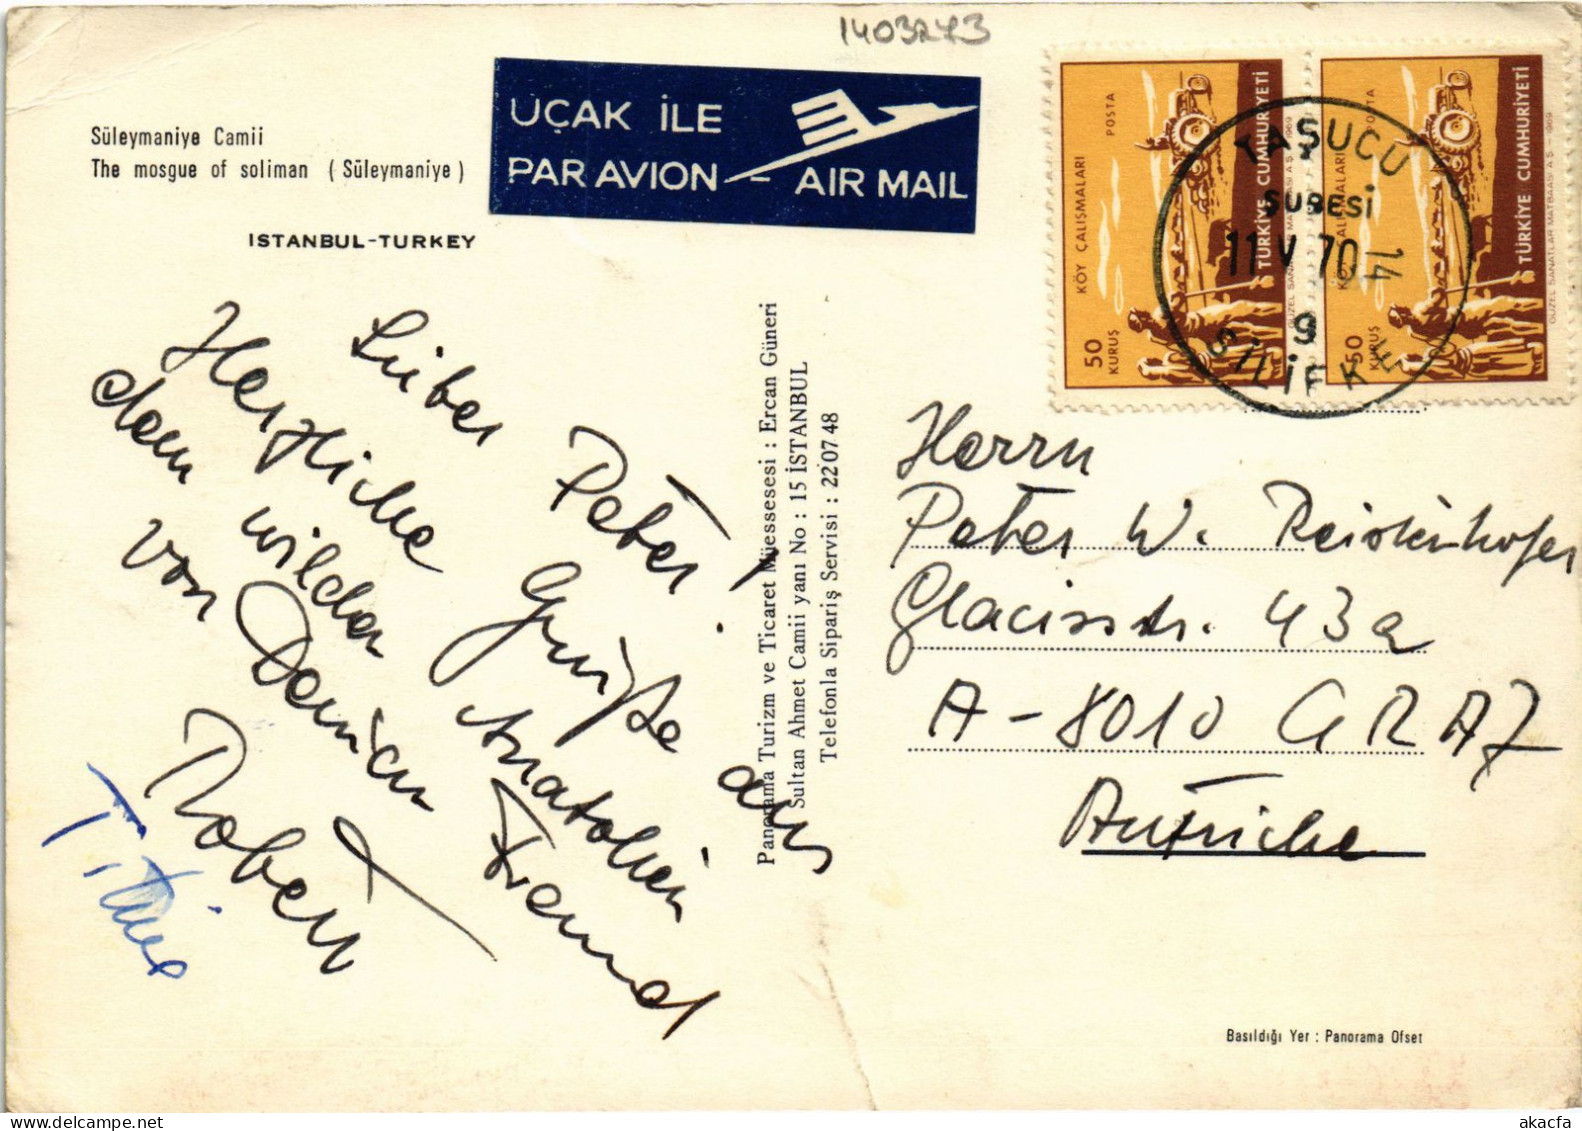 1403273
Süleymaniye Camii
The mosgue of soliman ( Süleymaniye )
ISTANBUL-TURKEY
UÇAK İLE
PAR AVION - AIR MAIL
POSTA
KÖY ÇALIŞMALARI
50
KURUŞ
TÜRKİYE CUMHURİYETİ
POSTA
50
KURUŞ
TÜRKİYE CUMHURİYETİ
GÜZEL SANATLAR MATBAASI A.Ş. - 1969
TAŞUCU
ŞUBESİ
11 V 70 14
9
SİLİFKE
Lieber Peter!
Herzliche Grüße aus
dem wilden Anatolien
von Deinem Freund
Robert
Panorama Turizm ve Ticaret Müessesesi : Ercan Güneri
Sultan Ahmet Camii yanı No : 15 İSTANBUL
Telefonla Sipariş Servisi : 22 07 48
Herrn
Peter W. Reistenhofer
Glacisstr. 43a
A-8010 GRAZ
Autriche
Basıldığı Yer : Panorama Ofset
delcampe.net
akacfa